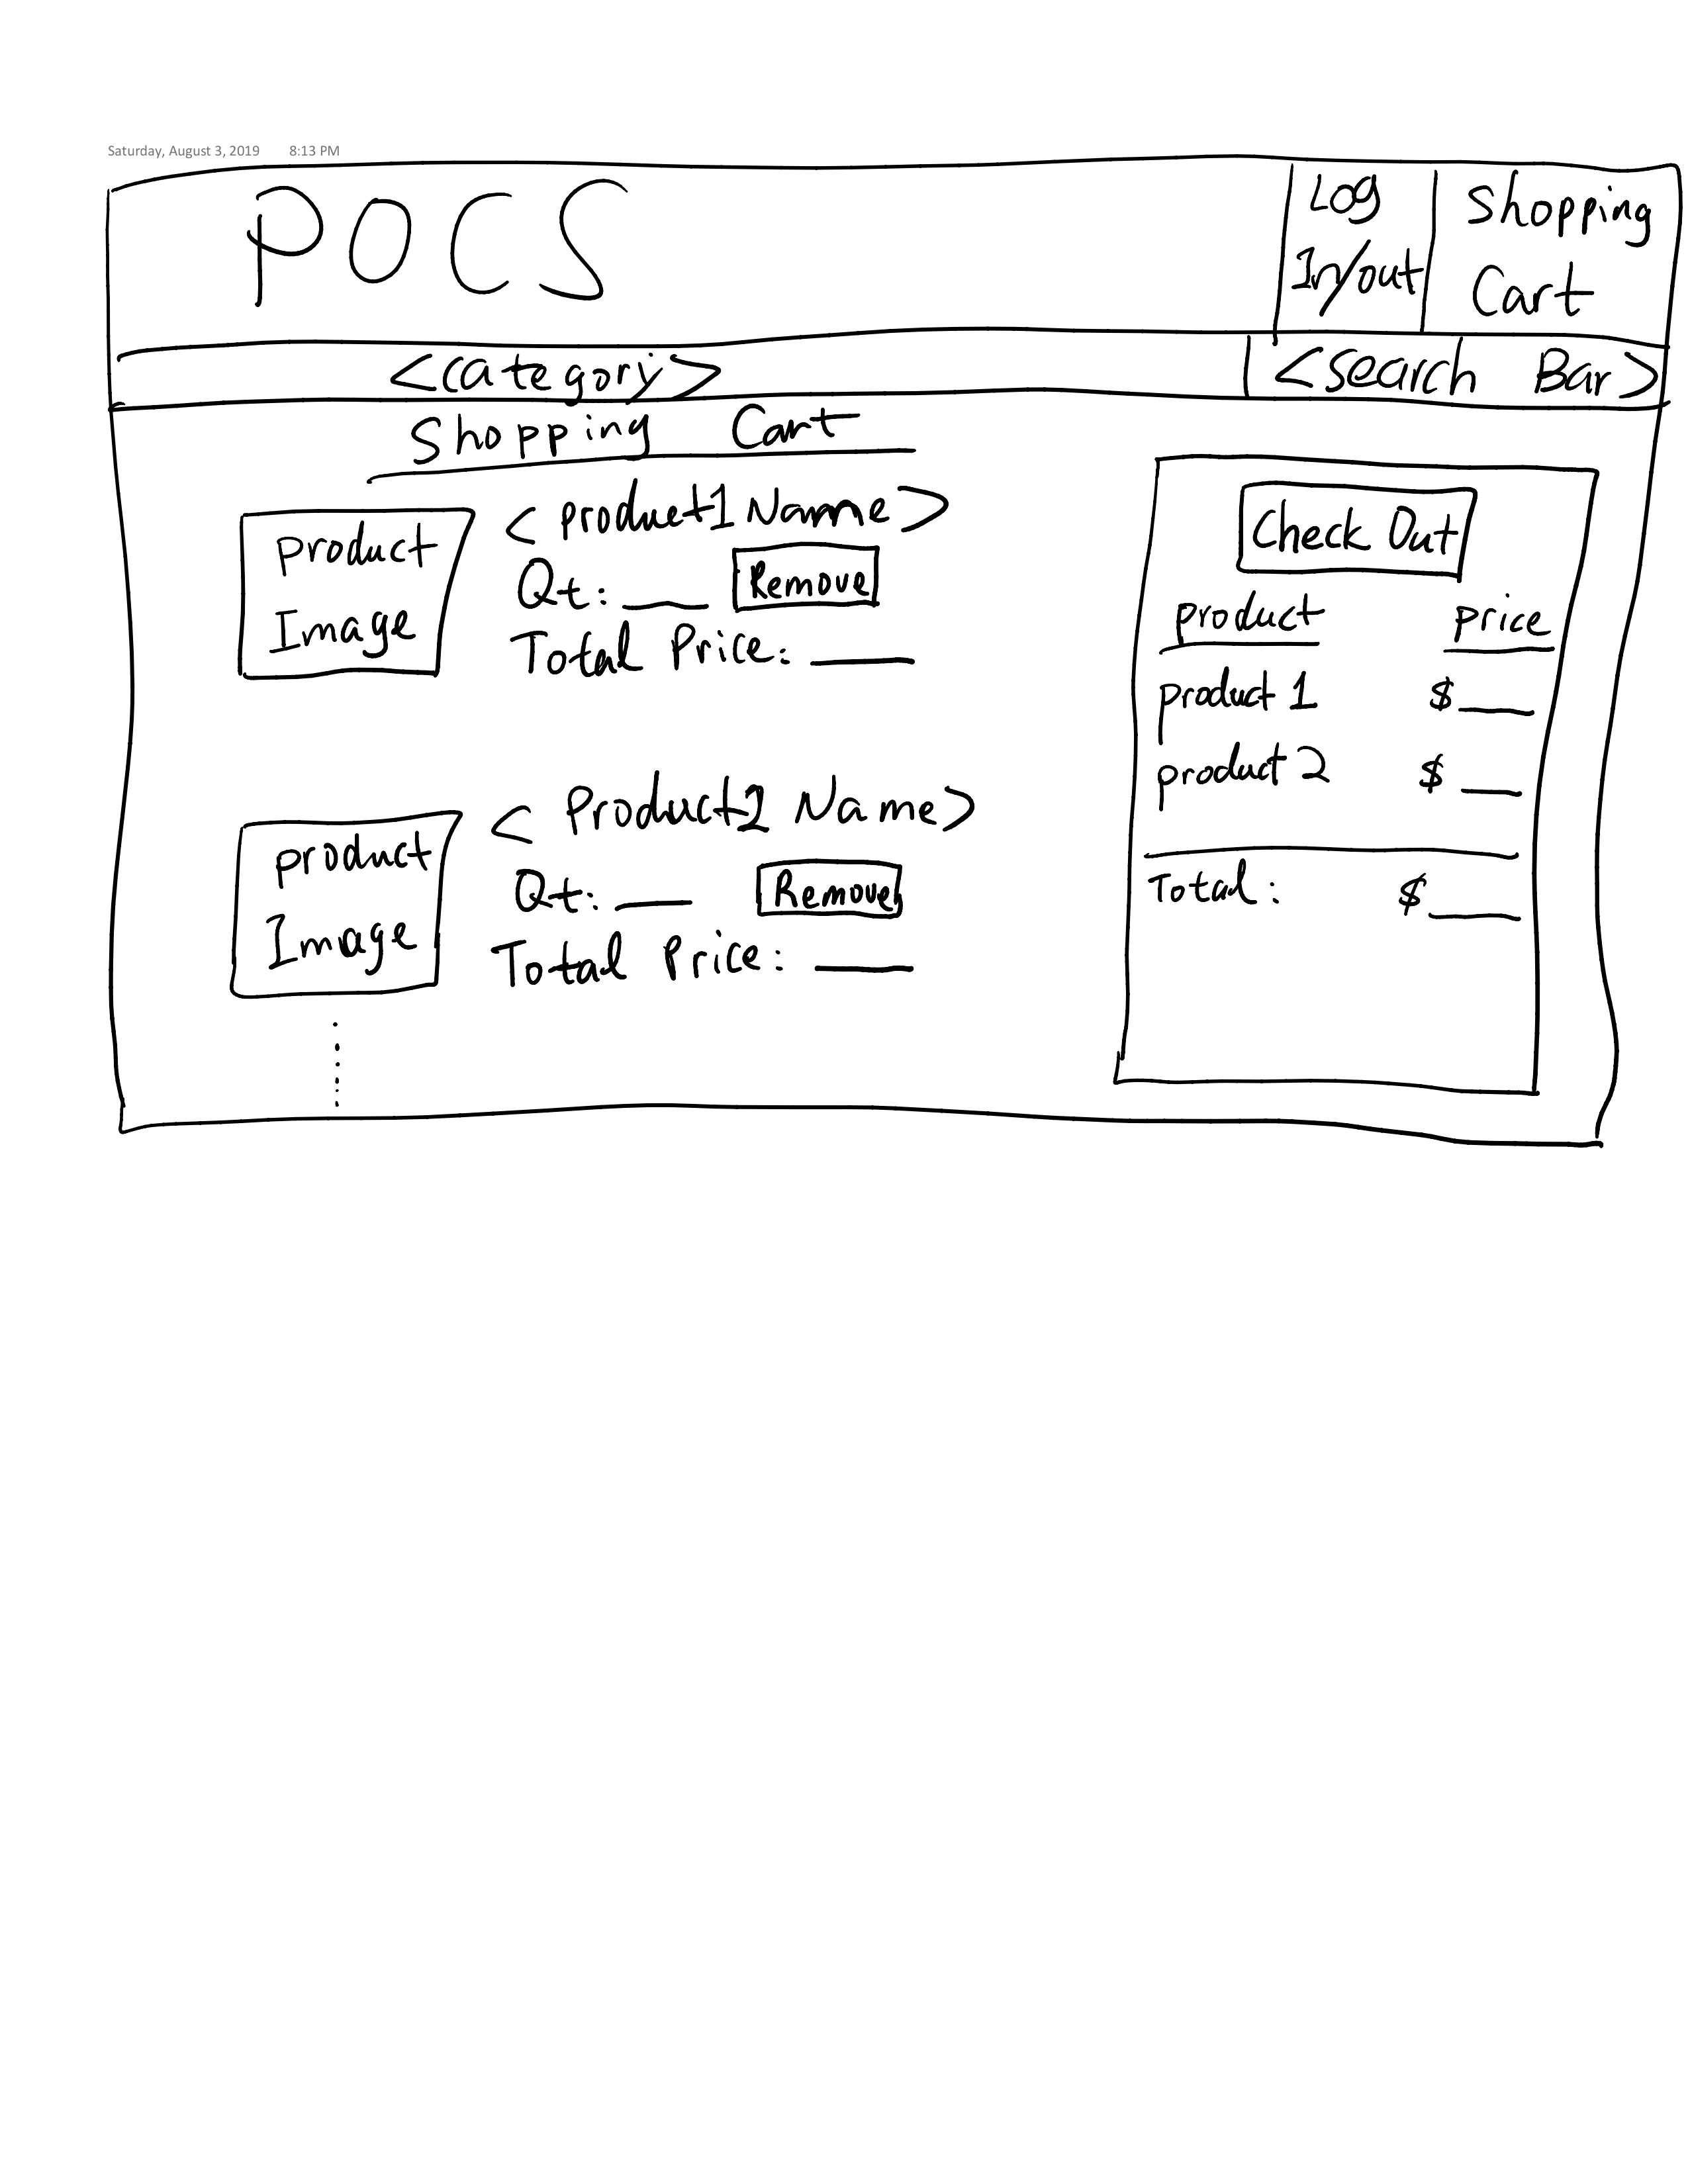 Saturday, August 3, 2019 8:13 PM
POCS
Log
In/out
Shopping
Cart
<category>
<search Bar>
Shopping Cart
product
Image
<product1 Name>
Qt: ___ Remove
Total Price: ___
product
Image
<Product2 Name>
Qt: ___ Remove
Total Price: ___
Check Out
product price
product 1 $___
product 2 $___
Total: $___